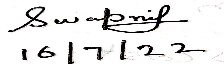 Swapnil
16/7/22